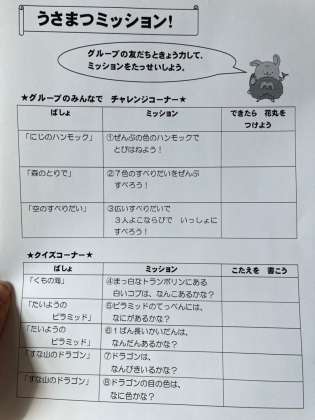 うさまつミッション!
グループの友だちときょう力して、
ミッションをたっせいしよう。
★グループのみんなで チャレンジコーナー★
ばしょ ミッション できたら 花丸を
つけよう
「にじのハンモック」 ①ぜんぶの色のハンモックで
とびはねよう!
「森のとりで」 ②7色のすべりだいをぜんぶ
すべろう!
「空のすべりだい」 ③広いすべりだいで
3人よこならびで いっしょに
すべろう!
★クイズコーナー★
ばしょ ミッション こたえを 書こう
「くもの海」 ④まっ白なトランポリンにある
白いコブは、なんこあるかな?
「たいようの
ピラミッド」 ⑤ピラミッドのてっぺんには、
なにがあるかな?
「たいようの
ピラミッド」 ⑥1ばん長いかいだんは、
なんだんあるかな?
「すな山のドラゴン」 ⑦ドラゴンは、
なんびきいるかな?
「すな山のドラゴン」 ⑧ドラゴンの目の色は、
なに色かな?